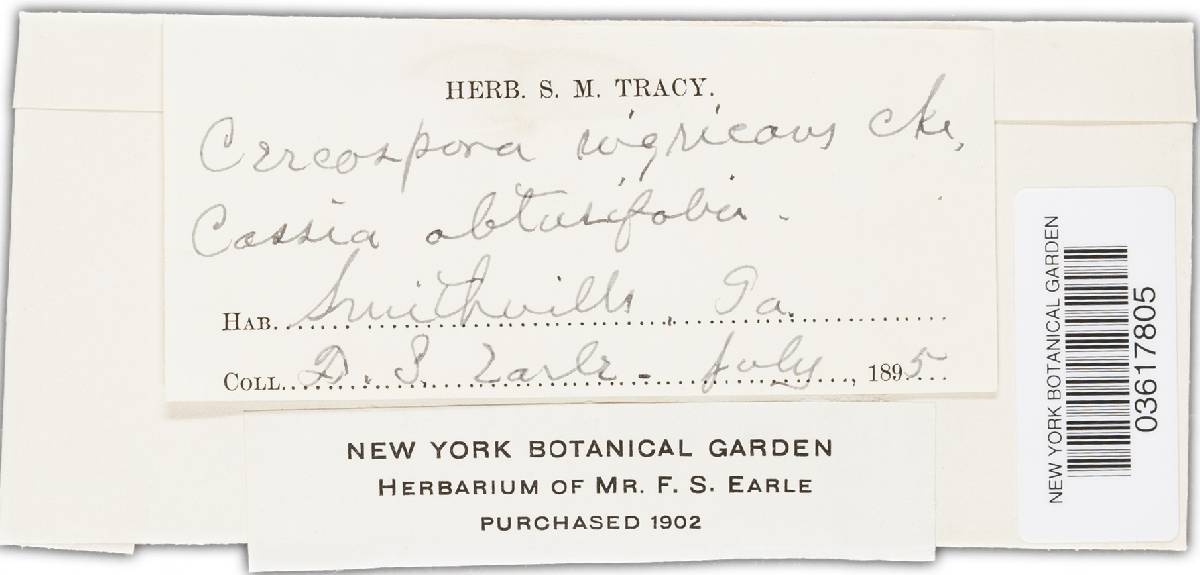 HERB. S. M. TRACY.
Cercospora nigricans Cke,
Cassia obtusifolia.
HAB. Smithville, Ga.
COLL. D. S. Earle - July, 1895
NEW YORK BOTANICAL GARDEN
HERBARIUM OF MR. F. S. EARLE
PURCHASED 1902
NEW YORK BOTANICAL GARDEN
03617805